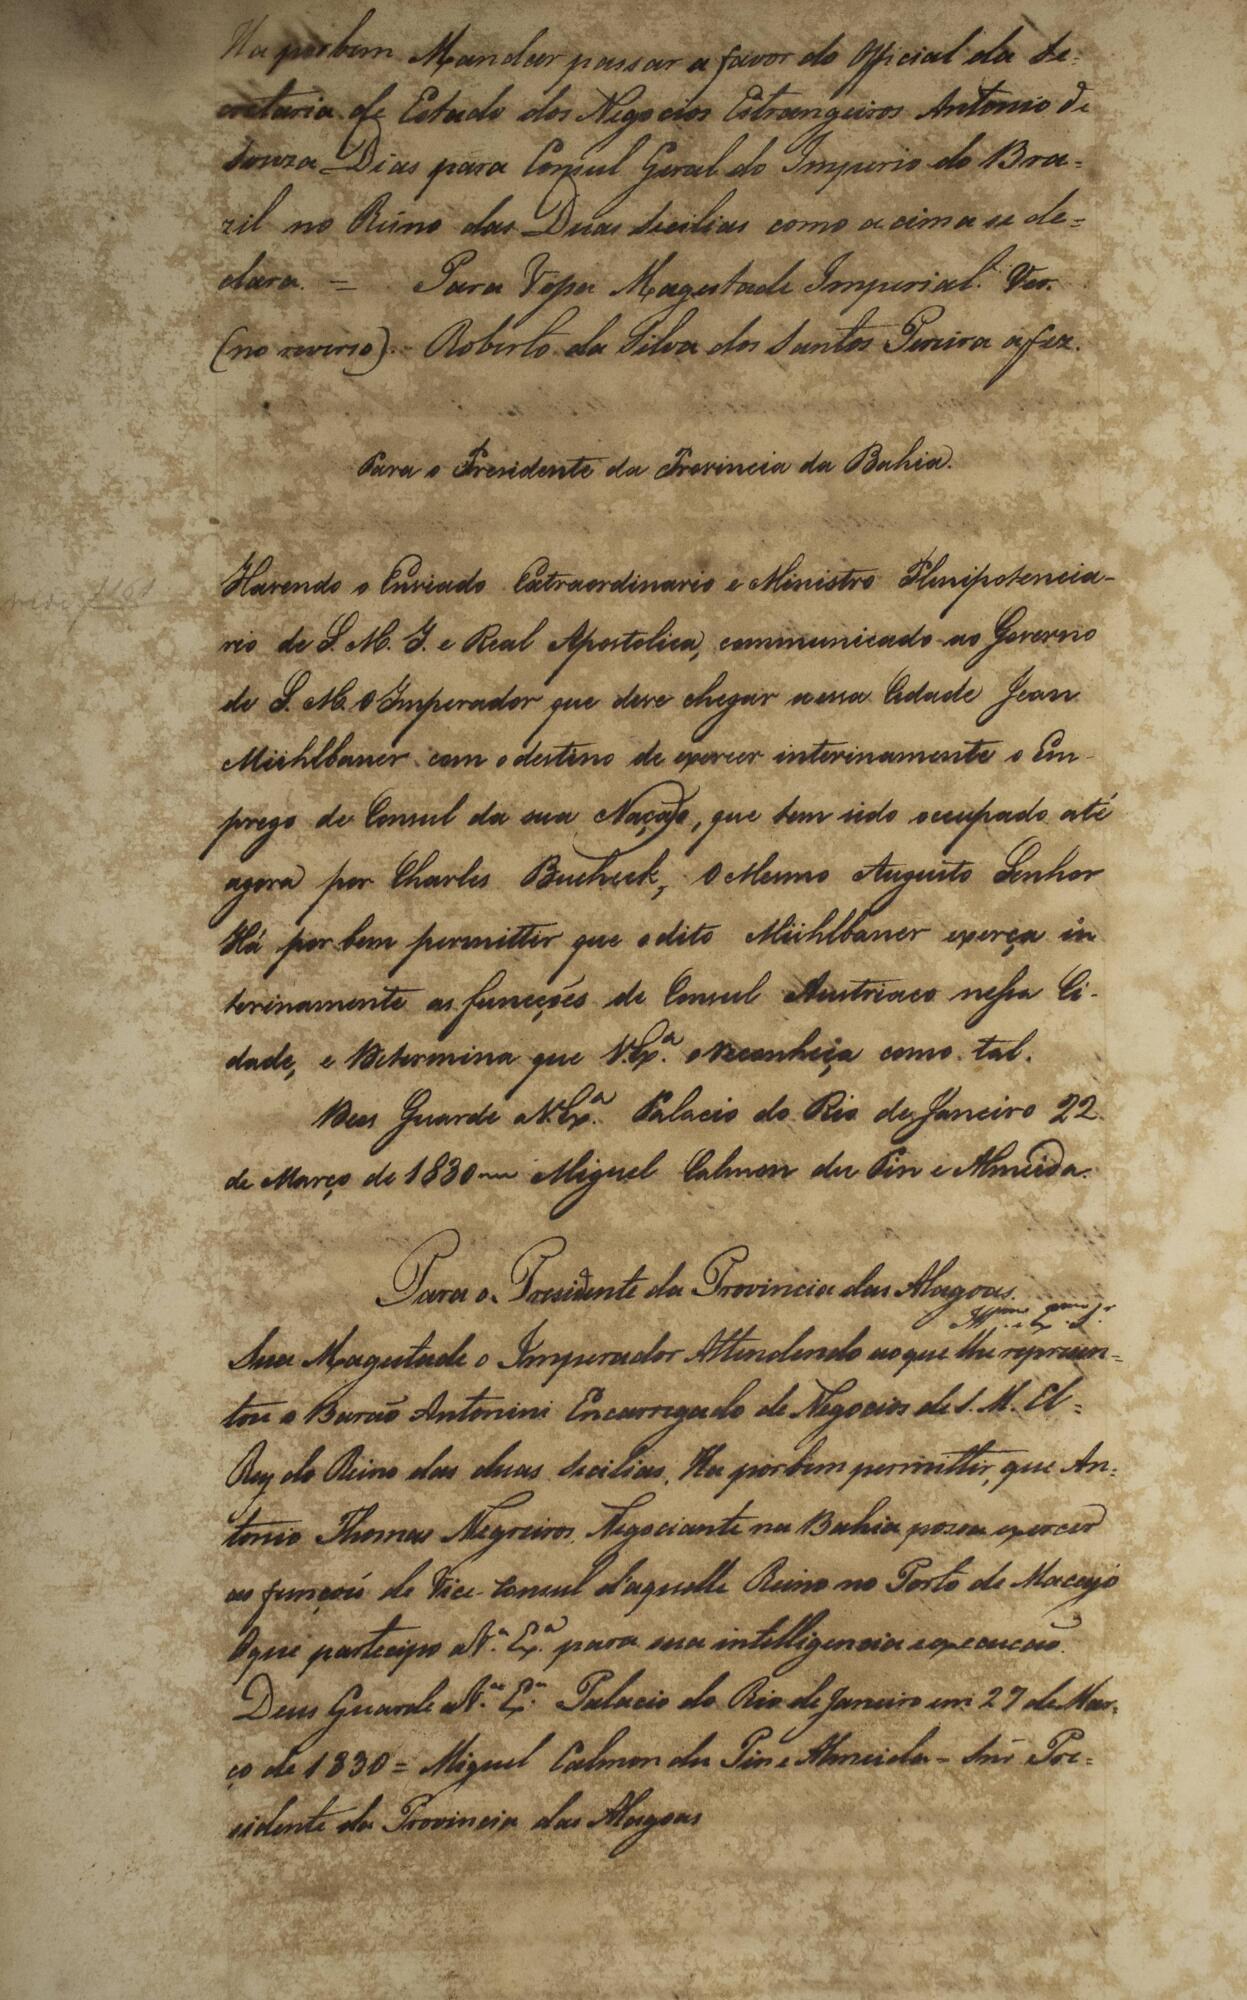 Ha por bem Mandar passar a favor do Official da Se-
cretaria de Estado dos Negocios Estrangeiros Antonio de
Souza Dias para Consul Geral do Imperio do Bra-
zil no Reino das Duas Sicilias como acima se de-
clara. = Para Vossa Magestade Imperial Ver.
(no reverso). Roberto da Silva dos Santos Pereira a fez.
Para o Presidente da Provincia da Bahia.
Havendo o Enviado Extraordinario e Ministro Plenipotencia-
rio de S. M. I. e Real Apostolica, communicado ao Governo
de S. M. O Imperador que deve chegar a essa Cidade Jean
Mühlbauer com o destino de exercer interinamente o Em-
prego de Consul da sua Nação, que tem sido occupado até
agora por Charles Bucheck, O Mesmo Augusto Senhor
Há por bem permittir que o dito Mühlbauer exerça in
terinamente as funcções de Consul Austriaco nessa Ci-
dade, e Determina que V. Exª. o reconheça como tal.
Deos Guarde a V. Exª. Palacio do Rio de Janeiro 22
de Março de 1830 Miguel Calmon du Pin e Almeida.
Para o Presidente da Provincia das Alagoas.
Illmo. e Exmo. Sr.
Sua Magestade o Imperador Attendendo ao que lhe represen-
tou o Barão Antonini Encarregado de Negocios de S. M. El-
Rey do Reino das duas Sicilias, Ha por bem permittir, que An-
tonio Thomas Negreiros, Negociante na Bahia possa exercer
as funções de Vice-Consul d'aquelle Reino no Porto de Maceyó
O que partecipo a V.ª Ex.ª para sua intelligencia e execução.
Deus Guarde a V.ª Ex.ª Palacio do Rio de Janeiro em 27 de Mar-
ço de 1830 = Miguel Calmon du Pin e Almeida - Snr. Pre-
sidente da Provincia das Alagoas